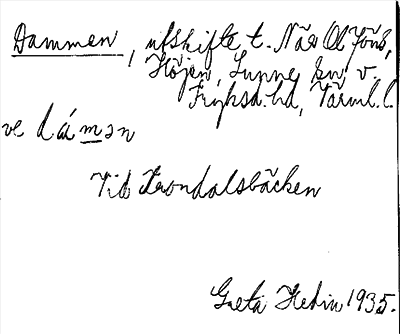 Dammen, utskifte t. Näs Ol Jöns,
Höjen, Sunne sn v.
Fryksd. hd, Värml. l.
ve dámən
Vid Trondalsbäcken
Greta Hedin 1935.